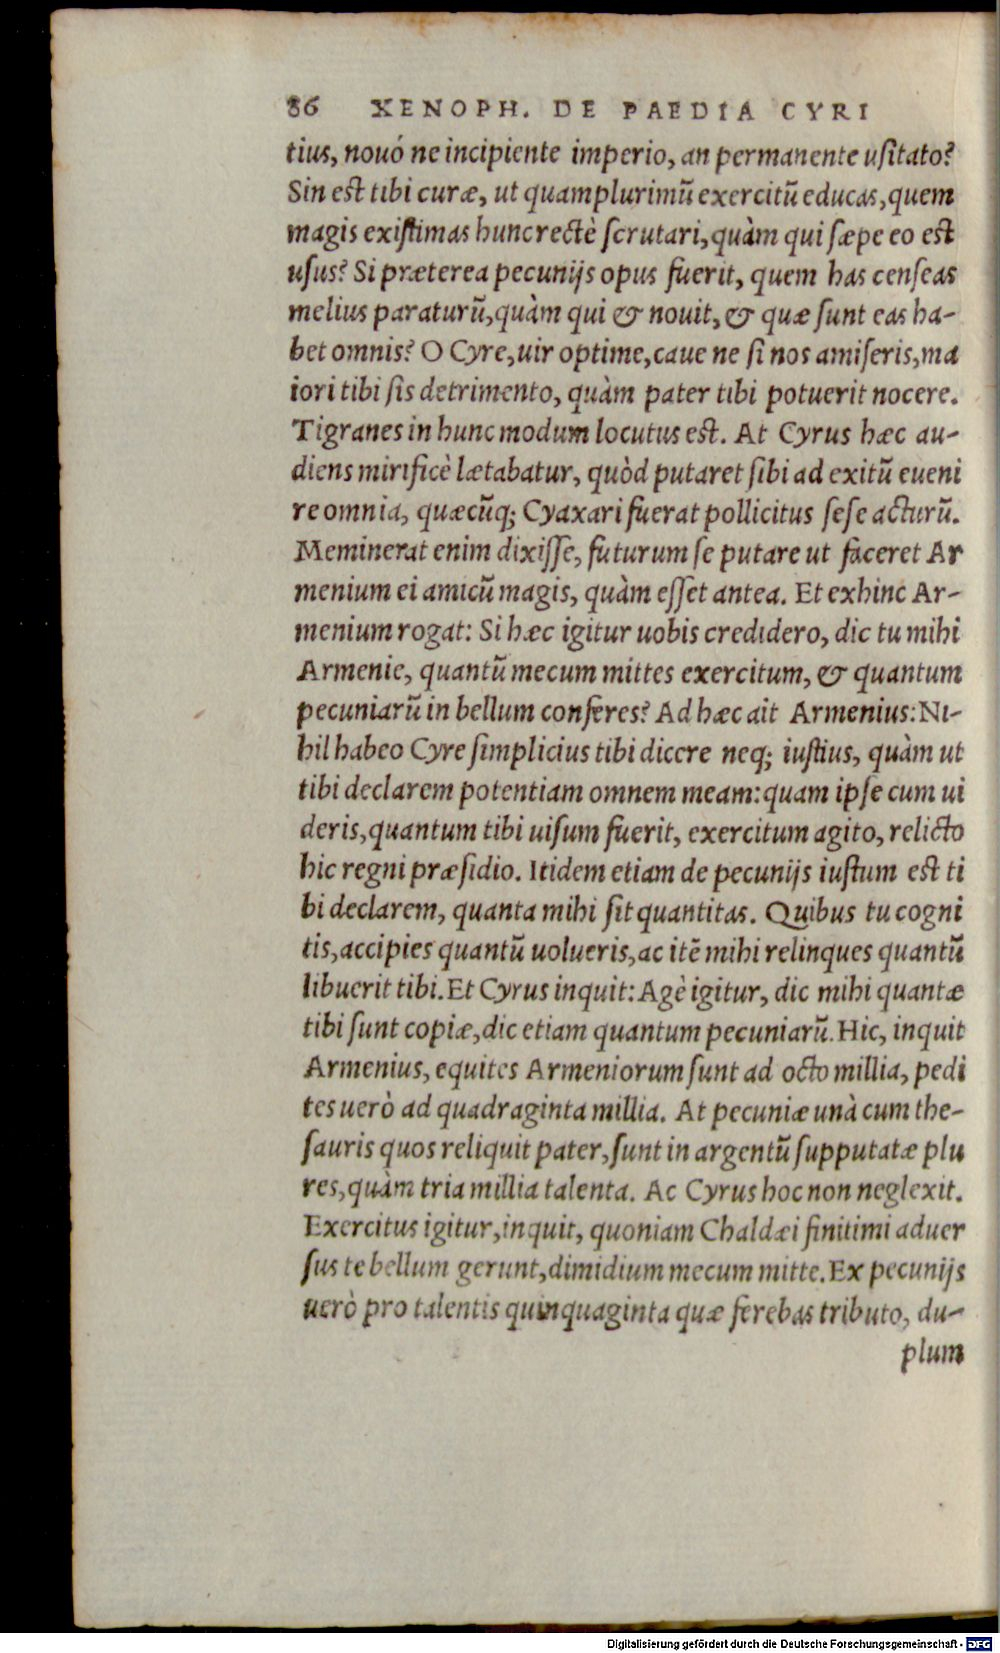 86 XENOPH. DE PAEDIA CYRI
tius, nouó ne incipiente imperio, an permanente usitato?
Sin est tibi curæ, ut quamplurimũ exercitũ educas, quem
magis existimas hunc rectè scrutari, quàm qui sæpe eo est
usus? Si præterea pecunijs opus fuerit, quem has censeas
melius paraturũ, quàm qui & nouit, & quæ sunt eas ha-
bet omnis? O Cyre, uir optime, caue ne si nos amiseris, ma
iori tibi sis detrimento, quàm pater tibi potuerit nocere.
Tigranes in hunc modum locutus est. At Cyrus hæc au-
diens mirificè lætabatur, quòd putaret sibi ad exitũ eueni
re omnia, quæcũq; Cyaxari fuerat pollicitus sese acturũ.
Meminerat enim dixisse, futurum se putare ut faceret Ar
menium ei amicũ magis, quàm esset antea. Et exhinc Ar-
menium rogat: Si hæc igitur uobis credidero, dic tu mihi
Armenie, quantũ mecum mittes exercitum, & quantum
pecuniarũ in bellum conferes? Ad hæc ait Armenius: Ni-
hil habeo Cyre simplicius tibi dicere neq; iustius, quàm ut
tibi declarem potentiam omnem meam: quam ipse cum ui
deris, quantum tibi uisum fuerit, exercitum agito, relicto
hic regni præsidio. Itidem etiam de pecunijs iustum est ti
bi declarem, quanta mihi sit quantitas. Quibus tu cogni
tis, accipies quantũ uolueris, ac itẽ mihi relinques quantũ
libuerit tibi. Et Cyrus inquit: Agè igitur, dic mihi quantæ
tibi sunt copiæ, dic etiam quantum pecuniarũ. Hic, inquit
Armenius, equites Armeniorum sunt ad octo millia, pedi
tes uerò ad quadraginta millia. At pecuniæ unà cum the-
sauris quos reliquit pater, sunt in argentũ supputatæ plu
res, quàm tria millia talenta. Ac Cyrus hoc non neglexit.
Exercitus igitur, inquit, quoniam Chaldæi finitimi aduer
sus te bellum gerunt, dimidium mecum mitte. Ex pecunijs
uerò pro talentis quinquaginta quæ ferebas tributo, du-
plum
Digitalisierung gefördert durch die Deutsche Forschungsgemeinschaft - DFG